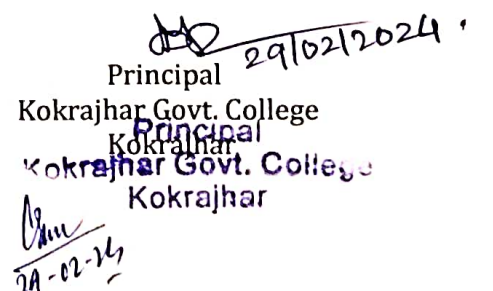 29/02/2024.
Principal
Kokrajhar Govt. College
Kokrajhar
Principal
Kokrajhar Govt. College
Kokrajhar
29-02-24